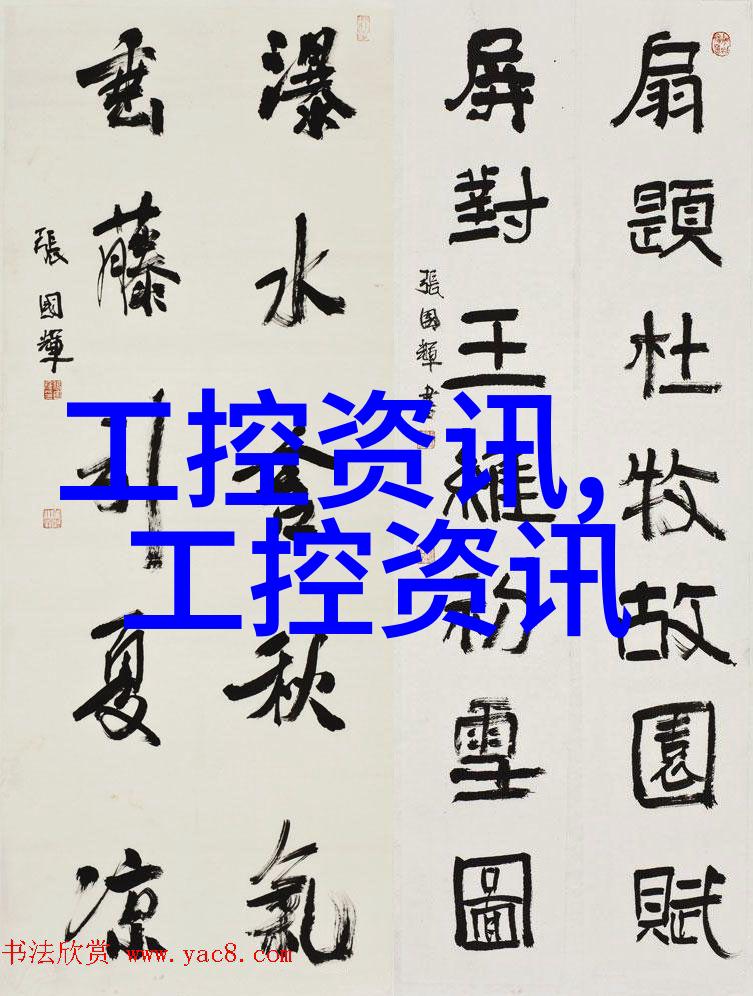 扇題杜牧故園賦
屏對王維初雪圖
張國輝書
瀑水含秋氣
垂藤引夏凉
張國輝
工控资讯,
工控资讯
书法欣赏 www.yac8.com